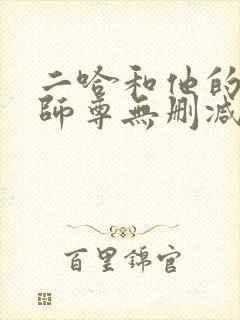 二哈和他的
師尊無删減
百里錦官